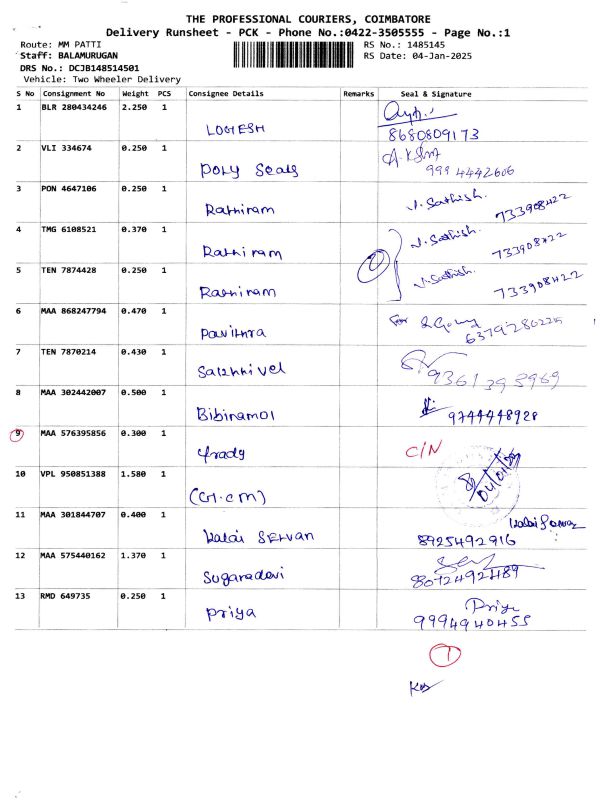 THE PROFESSIONAL COURIERS, COIMBATORE
Delivery Runsheet - PCK - Phone No.:0422-3505555 - Page No.:1
Route: MM PATTI RS No.: 1485145
Staff: BALAMURUGAN RS Date: 04-Jan-2025
DRS No.: DCJB148514501
Vehicle: Two Wheeler Delivery
S No Consignment No Weight PCS Consignee Details Remarks Seal & Signature
1 BLR 280434246 2.250 1
LOGESH 8680809173
2 VLI 334674 0.250 1
Poly Seals 9994442606
3 PON 4647106 0.250 1
Rathiram J. Sathish. 733908422
4 TMG 6108521 0.370 1
Rathiram J. Sathish. 733908422
5 TEN 7874428 0.250 1
Rathiram J. Sathish. 733908422
6 MAA 868247794 0.470 1
Pavithra for
7 TEN 7870214 0.430 1
Sakthivel 9361395969
8 MAA 302442007 0.500 1
Bibinamol 9744448928
9 MAA 576395856 0.300 1
C/N
10 VPL 950851388 1.580 1
11 MAA 301844707 0.400 1
Kalai Selvan 8925492916
12 MAA 575440162 1.370 1
Suganadevi 8072492489
13 RMD 649735 0.250 1
Priya Priya
9994940455
1